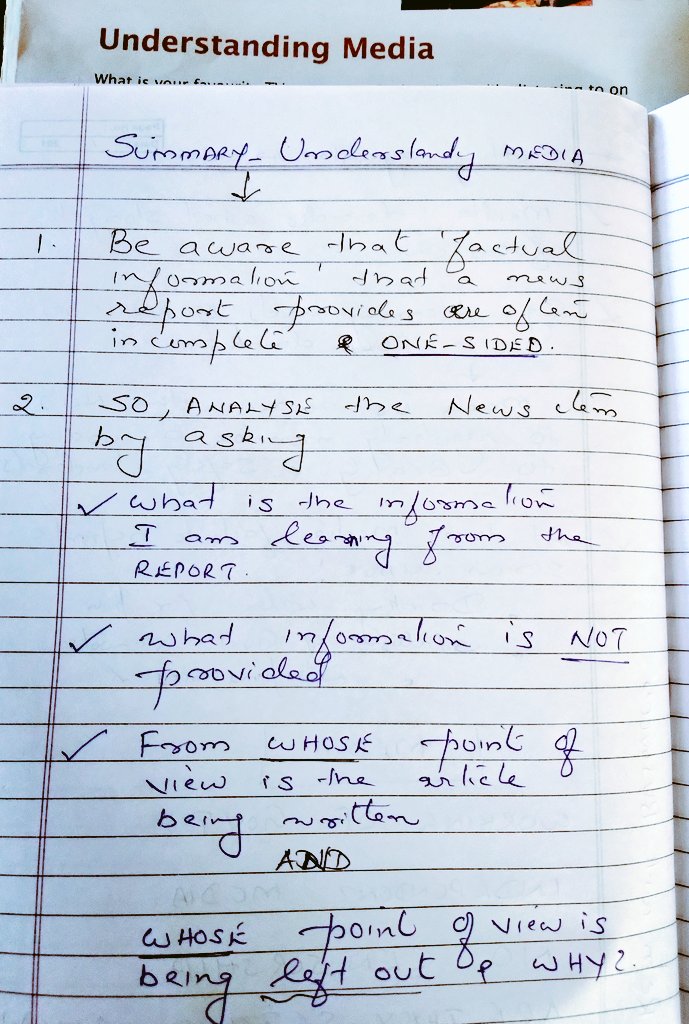 Understanding Media
What is your favourite
to on
SUMMARY - Understandy MEDIA
↓
1. Be aware that 'factual
information' that a news
report provides are often
incomplete & ONE-SIDED.
2. SO, ANALYSE the News item
by asking
✓ what is the information
I am learning from the
REPORT.
✓ what information is NOT
provided
✓ From WHOSE point of
view is the article
being written
AND
WHOSE point of view is
being left out & WHY?